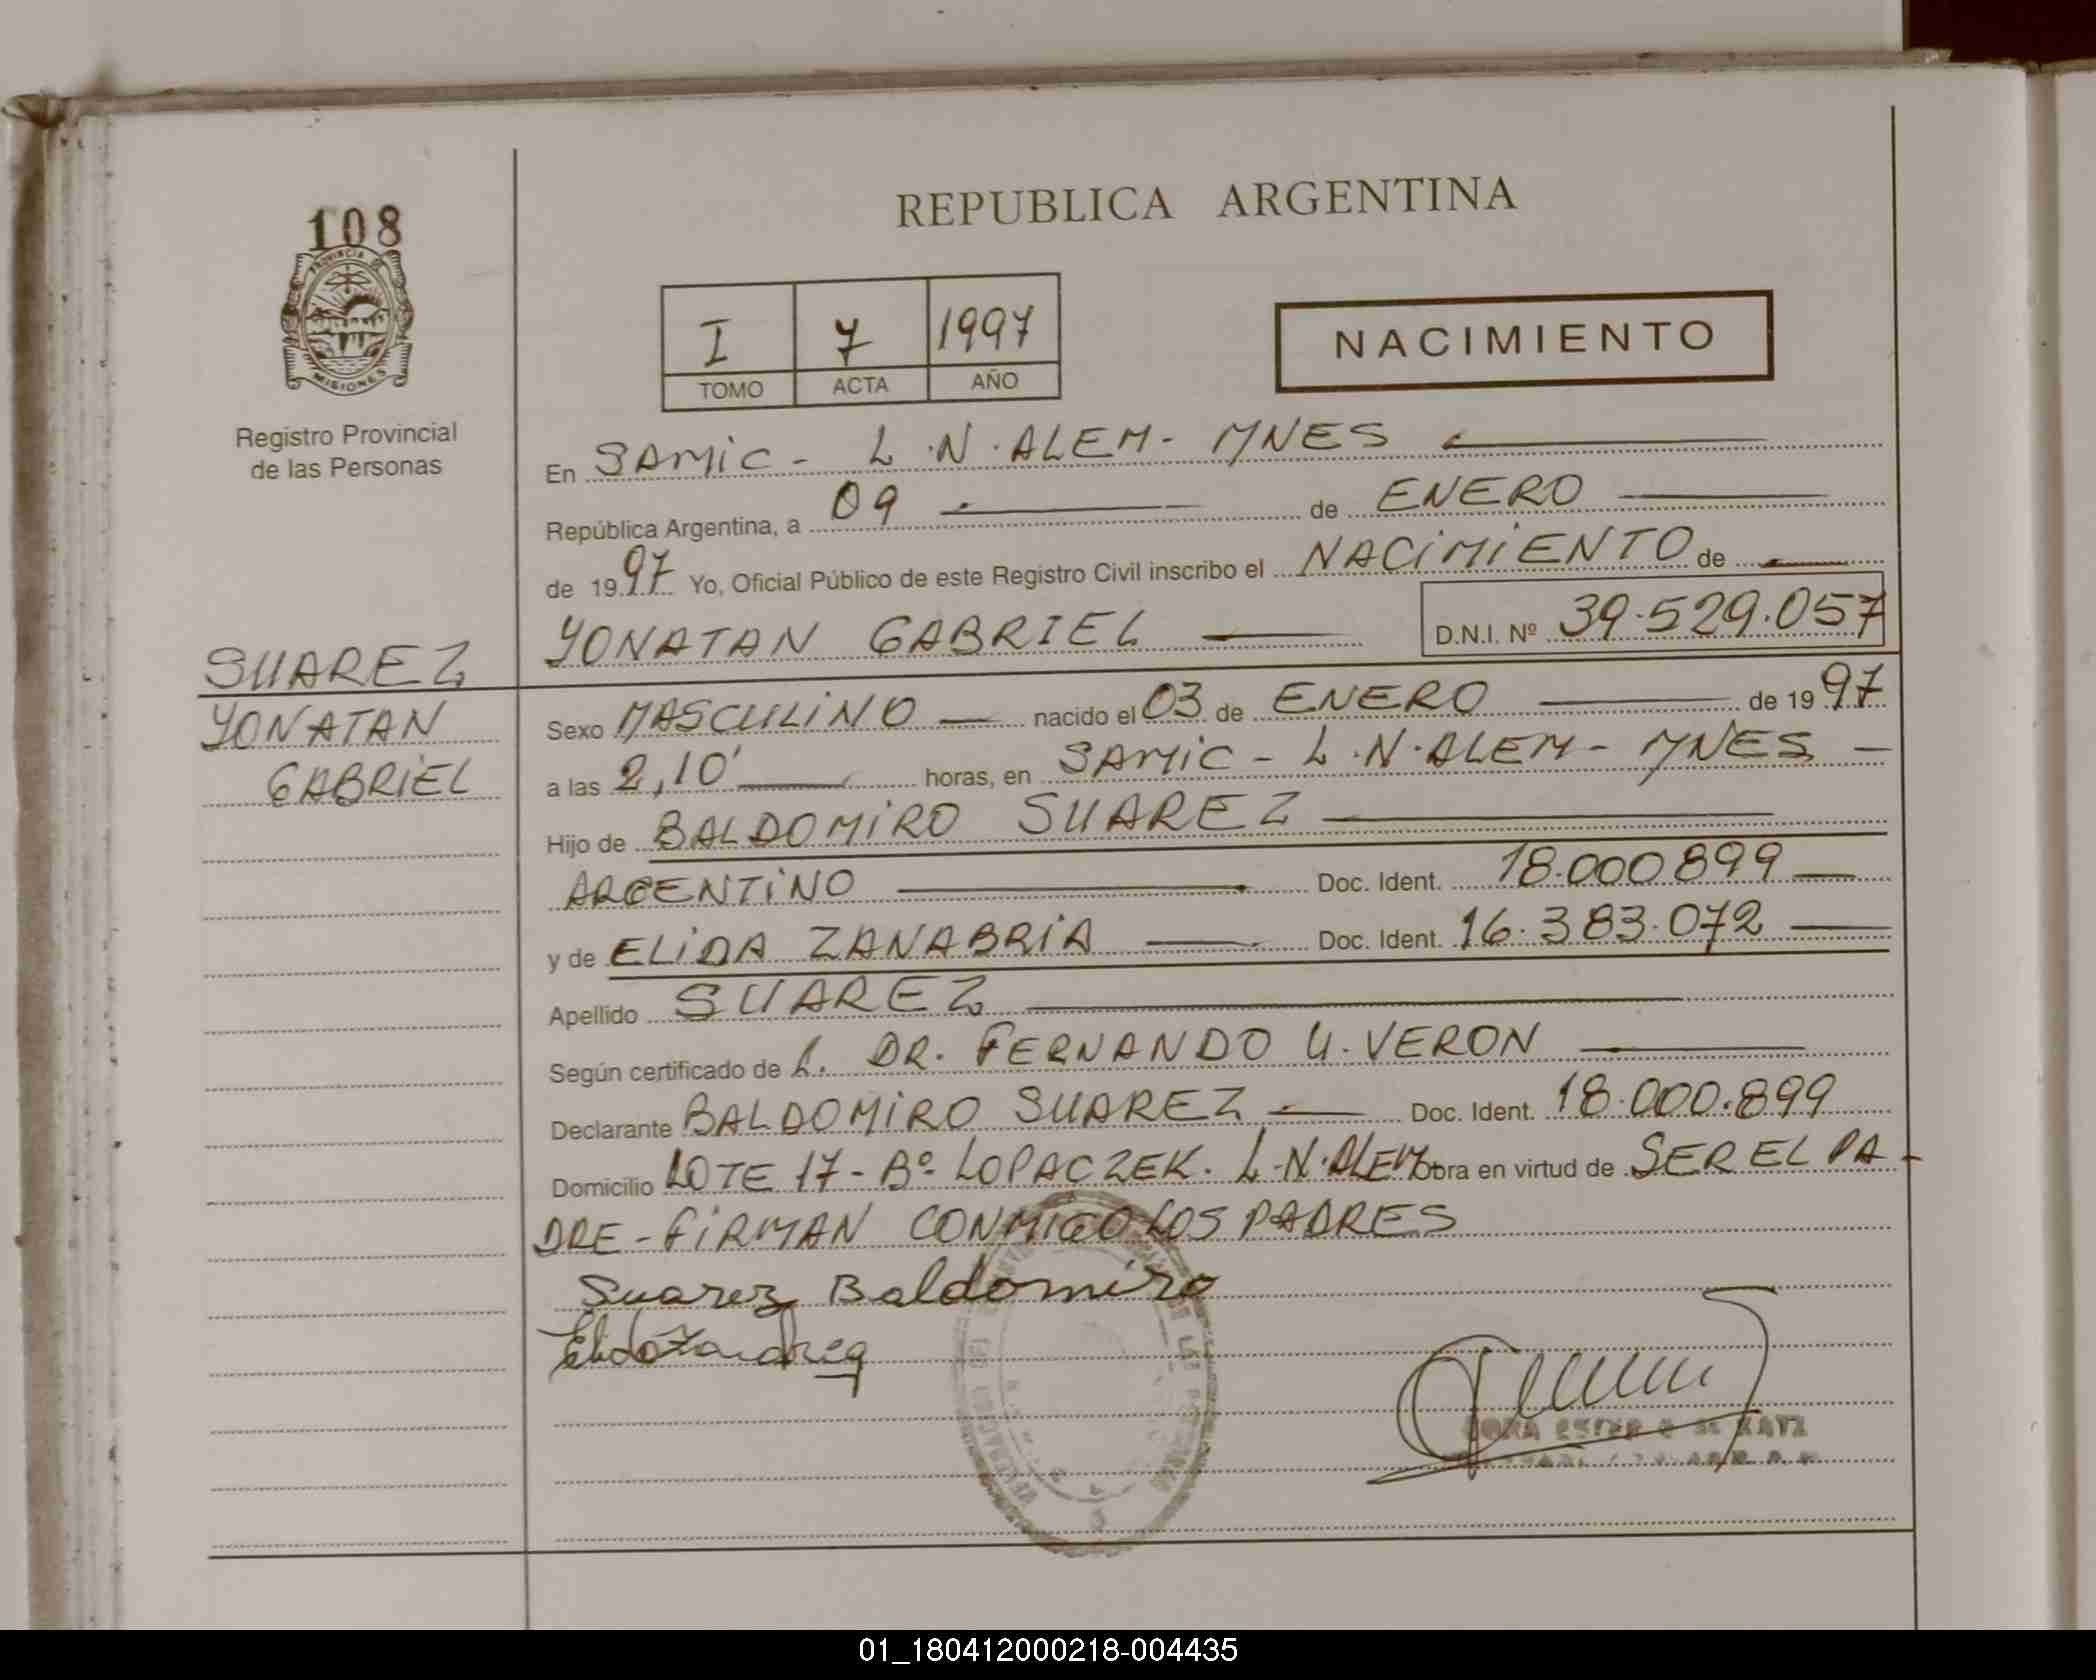 108
PROVINCIA DE
MISIONES
Registro Provincial
de las Personas
SUAREZ
YONATAN
GABRIEL
REPUBLICA ARGENTINA
I 7 1997
TOMO ACTA AÑO
NACIMIENTO
En SAMIC - L.N. ALEM - MNES
República Argentina, a 09 de ENERO
de 1997 Yo, Oficial Público de este Registro Civil inscribo el NACIMIENTO de
YONATAN GABRIEL D.N.I. Nº 39.529.057
Sexo MASCULINO nacido el 03 de ENERO de 1997
a las 2,10' horas, en SAMIC - L.N. ALEM - MNES
Hijo de BALDOMIRO SUAREZ
ARGENTINO Doc. Ident. 18.000899
y de ELIDA ZANABRIA Doc. Ident. 16.383.072
Apellido SUAREZ
Según certificado de L. DR. FERNANDO U. VERON
Declarante BALDOMIRO SUAREZ Doc. Ident. 18.000.899
Domicilio LOTE 17 - Bº LOPACZEK. L.N. ALEM Obra en virtud de SER EL PA-
DRE - FIRMAN CONMIGO LOS PADRES
Suarez Baldomiro
ESTER
01_180412000218-004435